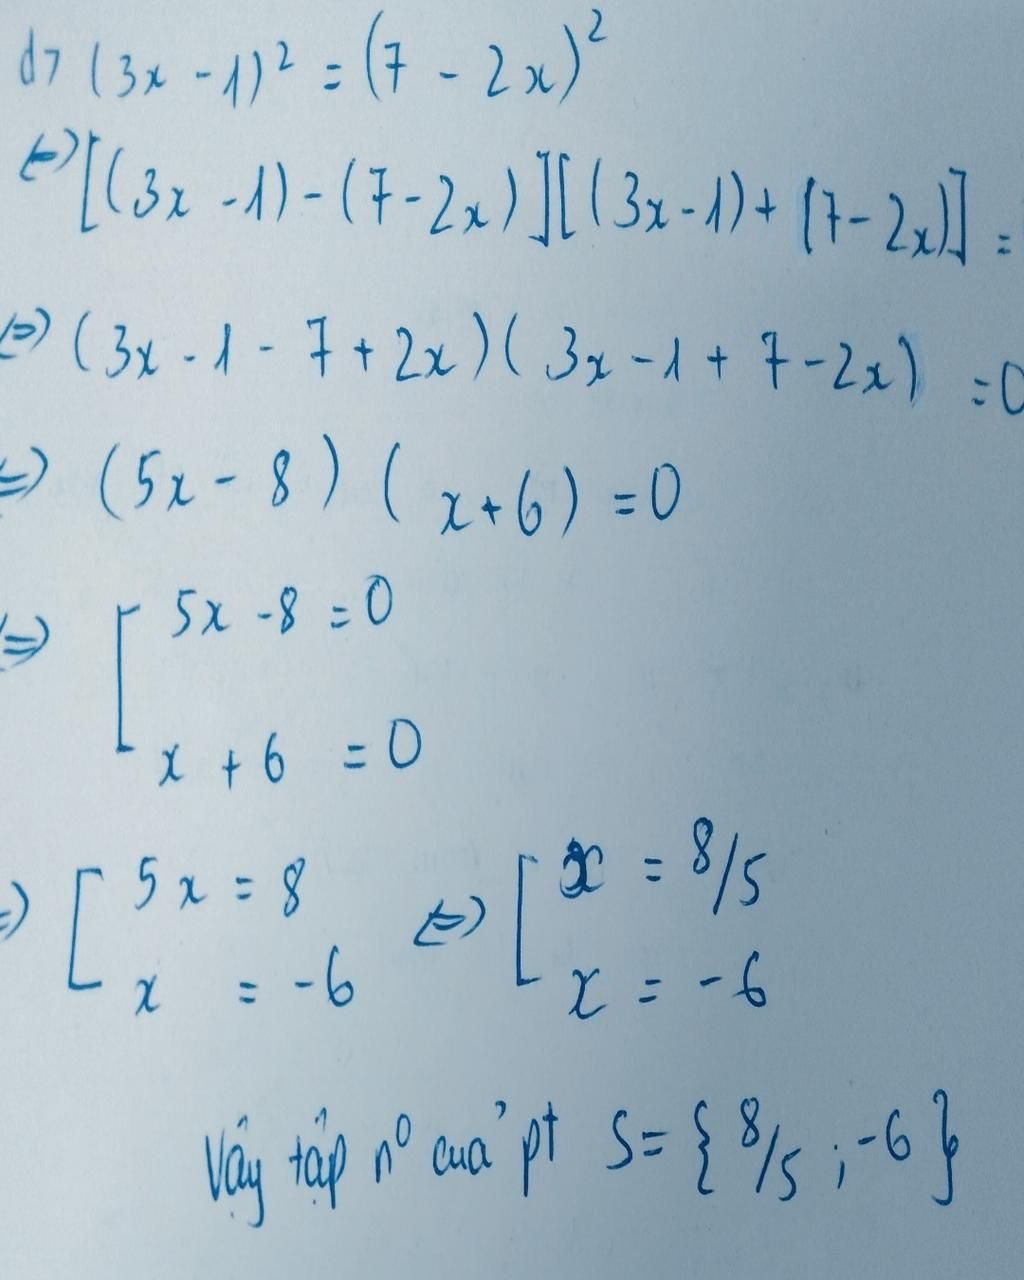 d) (3x - 1)² = (7 - 2x)²
⇔ [(3x - 1) - (7 - 2x)][(3x - 1) + (7 - 2x)] =
⇔ (3x - 1 - 7 + 2x)(3x - 1 + 7 - 2x) = 0
⇔ (5x - 8)(x + 6) = 0
⇔ [ 5x - 8 = 0
x + 6 = 0
⇔ [ 5x = 8 ⇔ [ x = 8/5
x = -6 x = -6
Vậy tập nº của pt S = {8/5 ; -6}